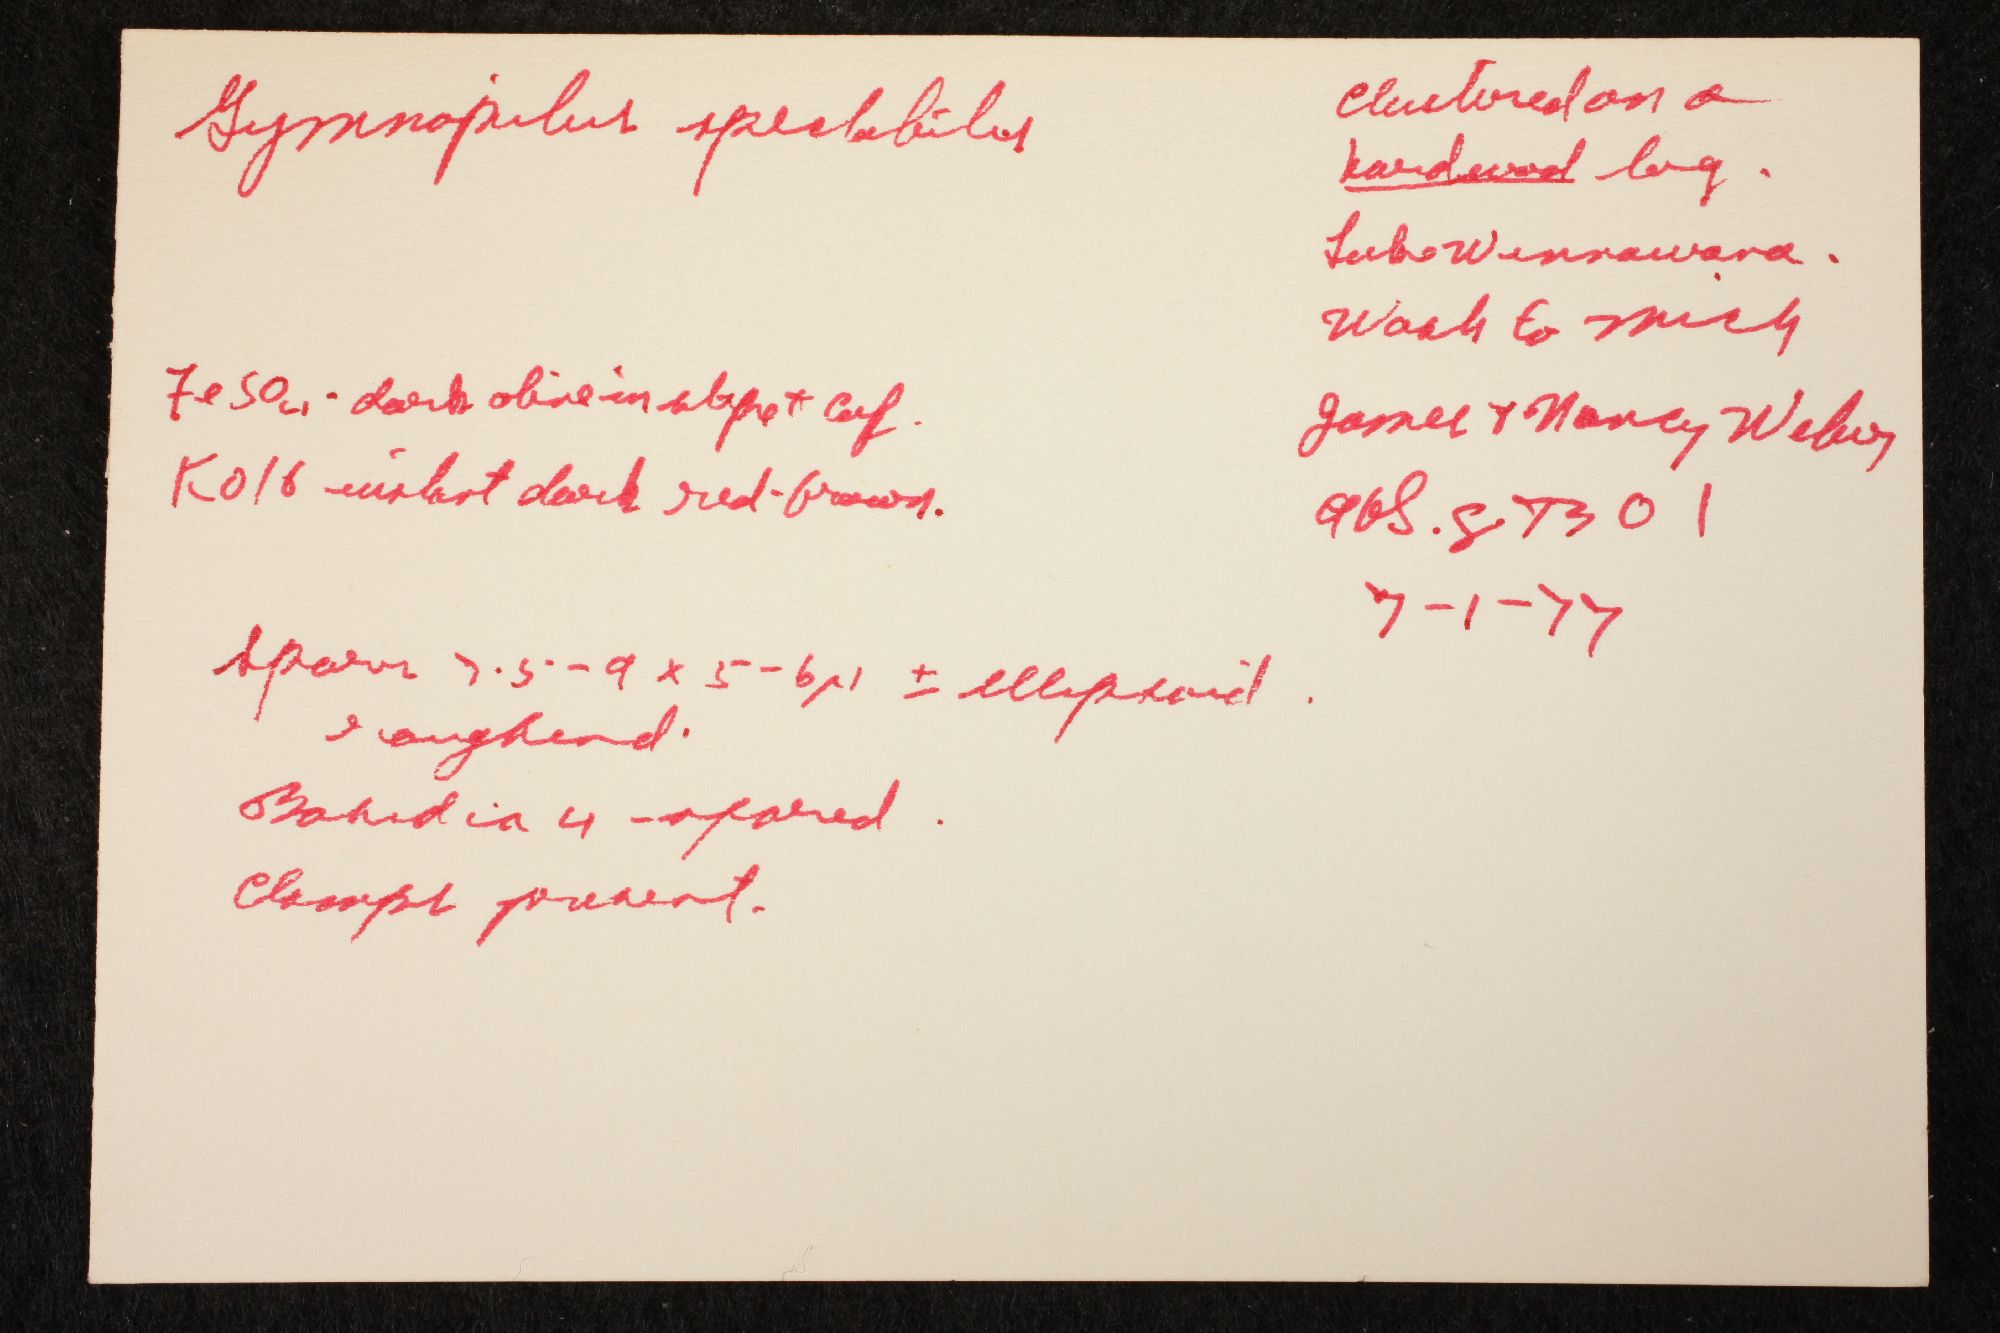 Gymnopilus spectabilis
Clustered on a
hardwood log.
Lake Winnawana.
Wash to Mich
James & Nancy Weber
obs.
7-1-77
FeSO4 - dark olive in stipe + cap.
KOH instant dark red-brown.
Spores 7.5-9 x 5-6 µ ± ellipsoid.
roughend.
Basidia 4-spored.
Clamps present.